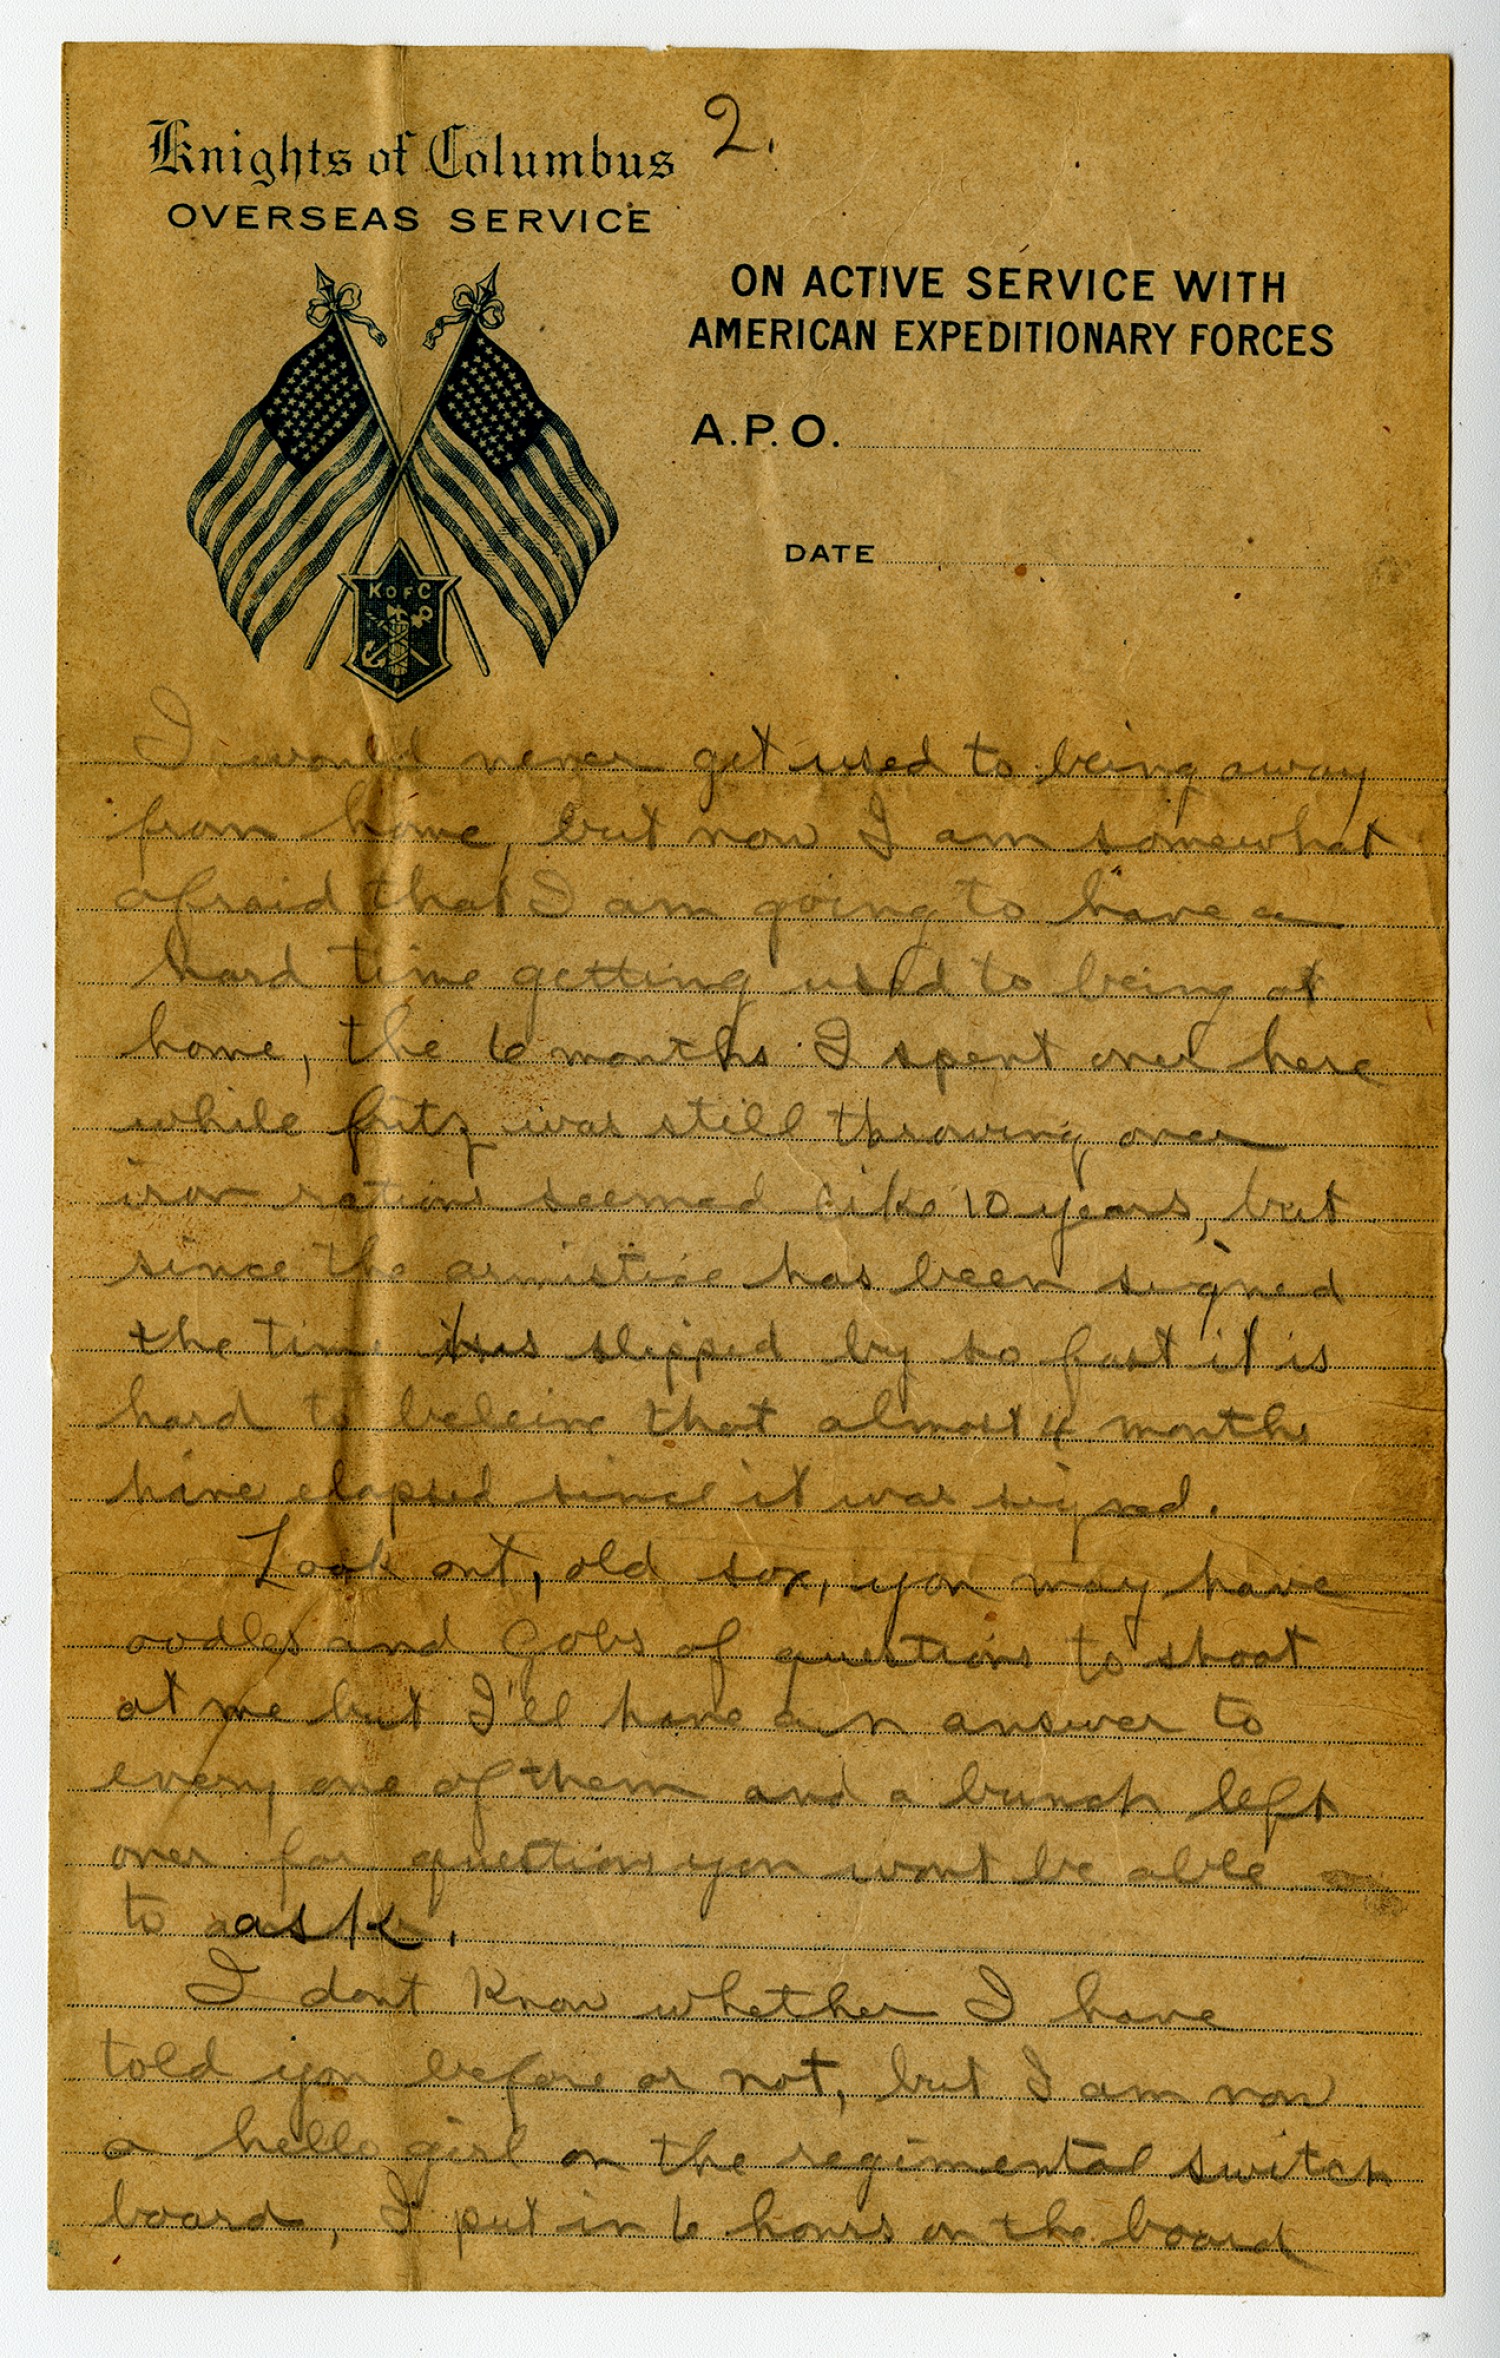 2.
Knights of Columbus
OVERSEAS SERVICE
ON ACTIVE SERVICE WITH
AMERICAN EXPEDITIONARY FORCES
A.P.O.
DATE
K OF C
I would never get used to being away
from home, but now I am somewhat
afraid that I am going to have a
hard time getting used to being at
home, the 6 months I spent over here
while fritz was still throwing over
iron rations seemed like 10 years, but
since the armistice has been signed
the time has slipped by so fast it is
hard to beleive that almost 4 months
have elapsed since it was signed.
Look out, old sox, you may have
oodles and gobs of questions to shoot
at me but I'll have an answer to
every one of them and a bunch left
over for questions you wont be able
to ask.
I dont know whether I have
told you before or not, but I am now
a hello girl on the regimental switch
board, I put in 6 hours on the board